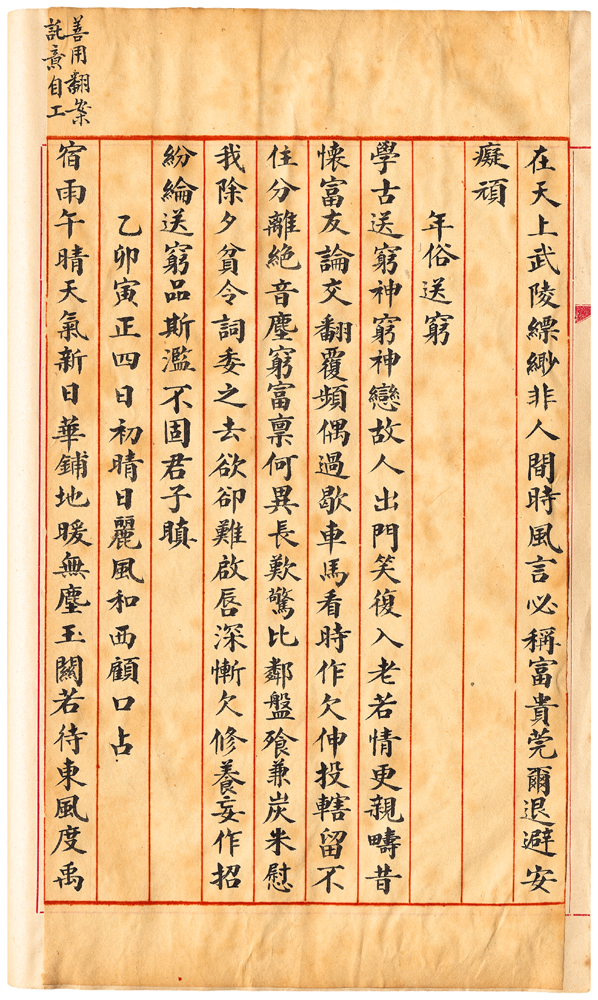 在天上武陵縹緲非人間時風言必稱富貴莞爾退避安
癡頑
年俗送窮
學古送窮神窮神戀故人出門笑復入老若情更親疇昔
懷富友論交翻覆頻偶過歇車馬看時作欠伸投轄留不
住分離絕音塵窮富稟何異長歎驚比鄰盤飱兼炭米慰
我除夕貧令詞委之去欲卻難啟唇深慚欠修養妄作招
紛綸送窮品斯濫不固君子瞋
乙卯寅正四日初晴日麗風和西顧口占
宿雨午晴天氣新日華鋪地暖無塵玉關若待東風度禹
善用翻案
託意自工